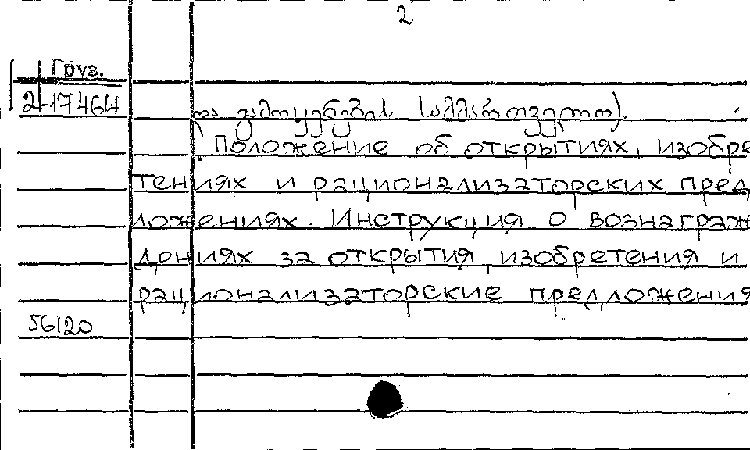 2
Груз.
2 17464
და გამოყენების სამმართველო).
Положение об открытиях, изобре
тениях и рационализаторских пред
ложениях. Инструкция о вознаграж
дениях за открытия, изобретения и
рационализаторские предложения
56120